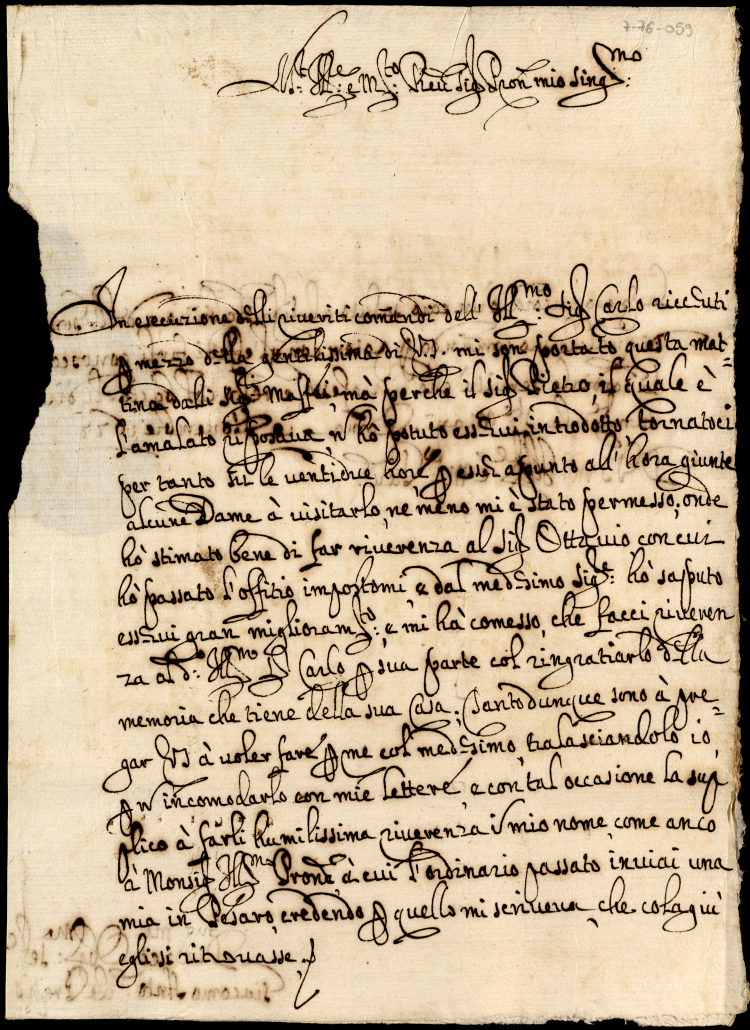 7-76-059
M.to Ill.re e M.to Reu Sig Pron mio Sing.mo
In esecuzione delli riueriti comãndi dell' Ill.mo Sig Carlo riceuti
p mezzo della gentilissima di VS. mi son portato questa mat=
tina dalli Sig.ri Maffei, mà perche il Sig Pietro, il quale è
l'amãlato riposaua, ñ hò potuto esserui introdotto, tornatoci
per tanto sù le ventidue hore p esser apunto all' hora giunte
alcune Dame à uisitarlo, ne meno mi è stato permesso; onde
hò stimato bene di far riuerenza al Sig Ottauio con cui
hò passato l'offitio impostomi, e dal medesimo Sig.re hò saputo
esserui gran miglioram.to, e mi hà comesso, che facci riueren
za al d.o Ill.mo S Carlo p sua parte col ringratiarlo della
memoria che tiene della sua Casa; Santo dunque sono à pre=
gar VS à uoler fare p me col medesimo, tralasciandolo io,
p ñ incomodarlo con mie lettere, e con tal occasione la sup
plico à farli humilissima riuerenza in mio nome, come anco
à Monsig Ill.mo Prone, à cui l'ordinario passato inuiai una
mia in Pesaro, credendo p quello mi scriueua, che colagiù
egli si ritrouasse,